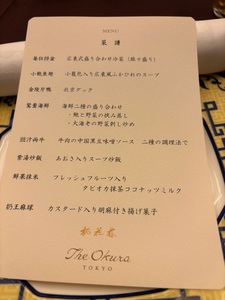 MENU
菜譜
広東式盛り合わせ冷菜（銘々盛り）
小籠包入り広東風ふかひれのスープ
北京ダック
鴛鴦海鮮 海鮮二種の盛り合わせ
・鮑と野菜の挟み蒸し
・大海老の野菜刺し炒め
牛肉の中国黒豆味噌ソース 二種の調理法で
紫湯炒飯 あおさ入りスープ炒飯
鮮菓抹米 フレッシュフルーツ入り
タピオカ抹茶ココナッツミルク
奶王麻球 カスタード入り胡麻付き揚げ菓子
桃花林
The Okura
TOKYO